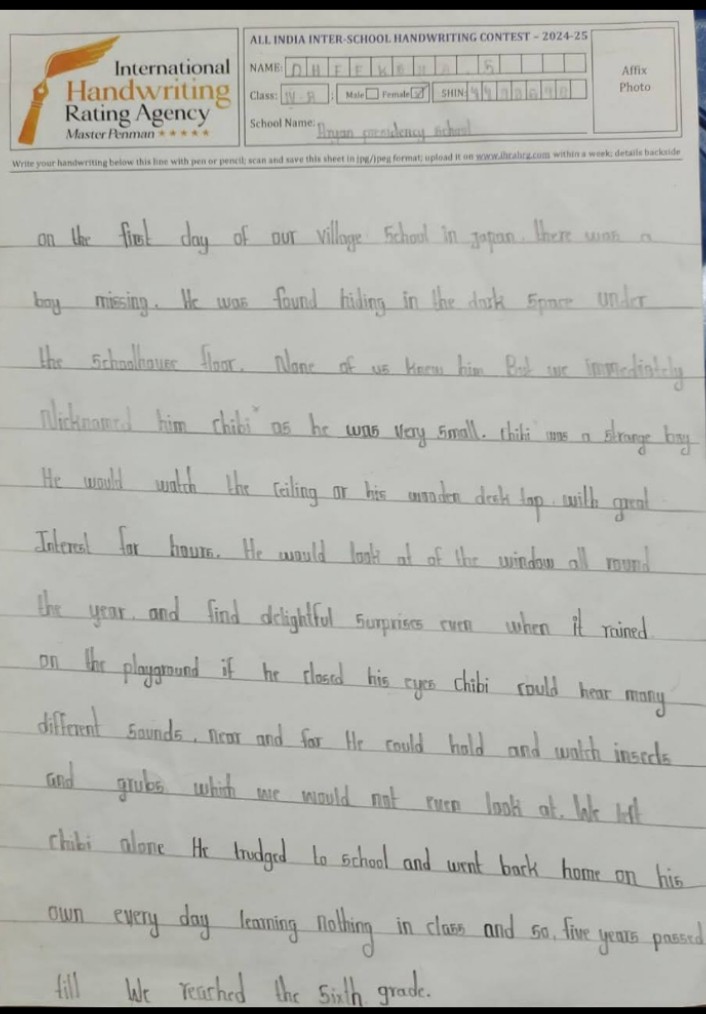 International
Handwriting
Rating Agency
Master Penman
ALL INDIA INTER-SCHOOL HANDWRITING CONTEST – 2024-25
NAME:
Class: IV-B ; Male Female SHIN:
School Name: Aryan presidency school
Affix
Photo
Write your handwriting below this line with pen or pencil; scan and save this sheet in jpg/jpeg format; upload it on www.ihrahrg.com within a week; details backside
on the first day of our village School in japan. there was a
boy missing. He was found hiding in the dark Space under
the Schoolhouer floor. None of us knew him But we immediately
Nicknamed him Chibi" as he was very small. chibi was a strange boy
He would watch the Ceiling or his wooden desk top with great
Interest for hours. He would look at of the window all round
the year. and find delightful surprises even when it rained
on the playground if he closed his eyes Chibi could hear many
different Sounds, near and far He could hold and watch insects
and grubs which we would not even look at. We left
Chibi alone He trudged to school and went back home on his
own every day learning Nothing in class and so, five years passed
till We reached the Sixth grade.